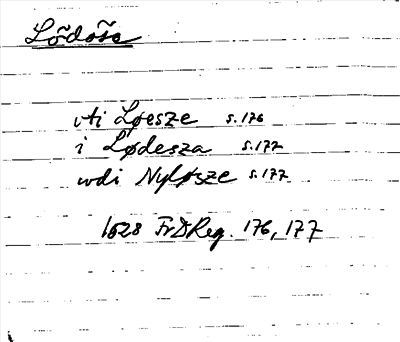 Lödöse
vti Løesze s. 176
i Lødesza s. 177
wdi Nyløsze s. 177
1528 Fr D Reg. 176, 177